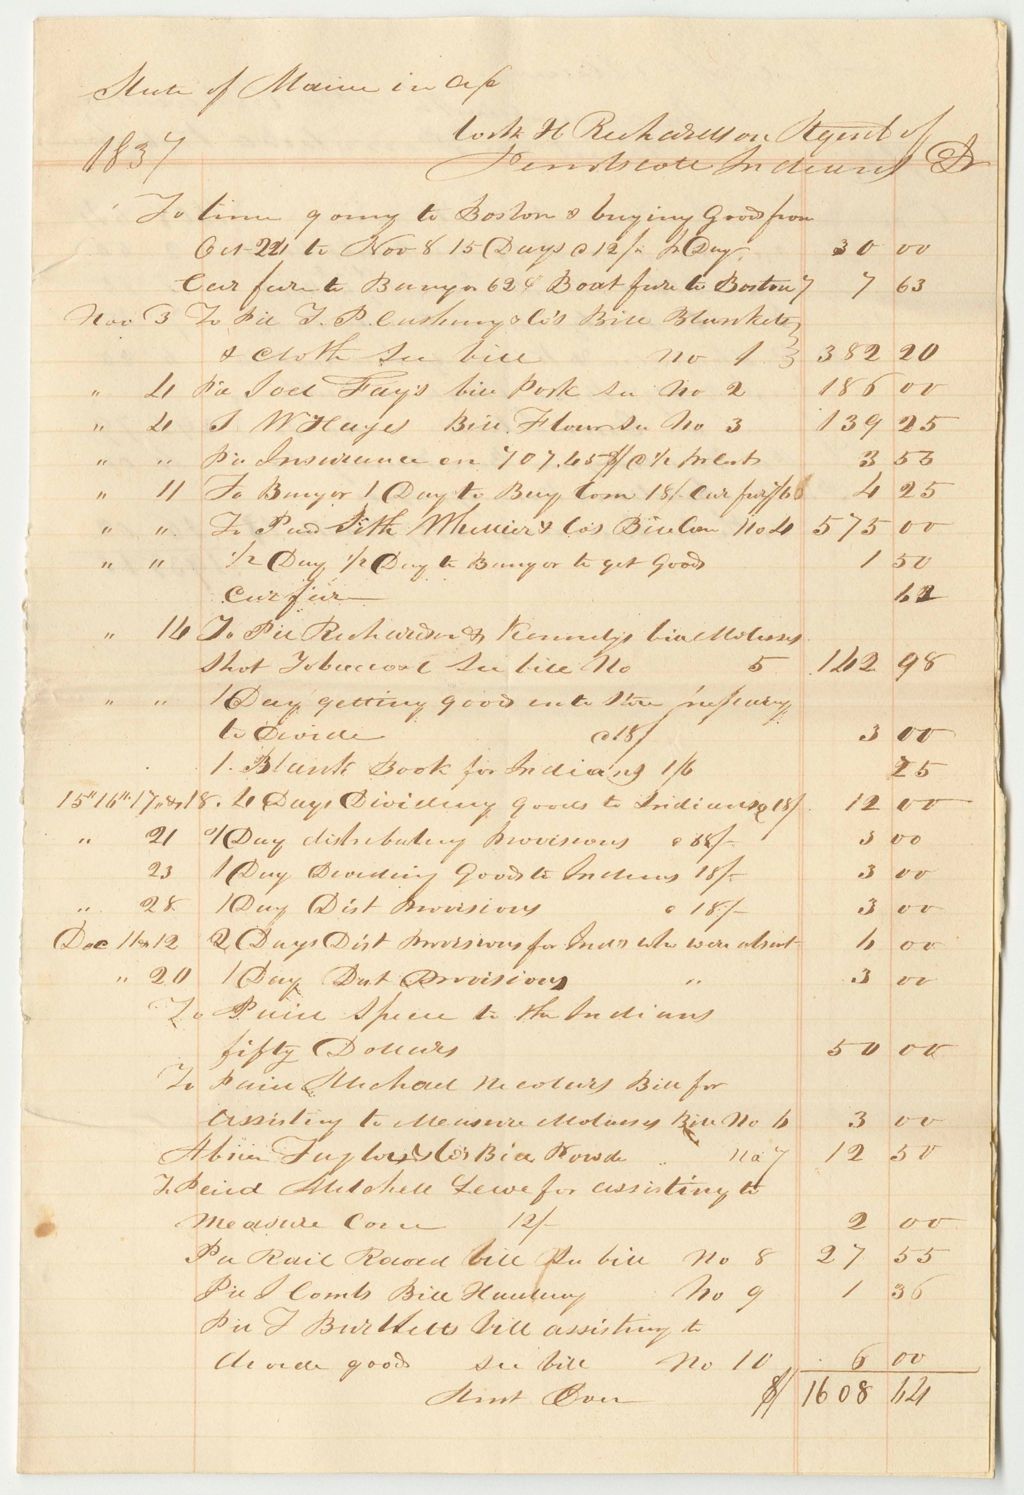 State of Maine in a/c
with H Richardson Agent of
1837 Penobscott Indians Dr
To time going to Boston & buying Goods from
Oct 24 to Nov 8 15 Days @ 12/ pr Day 30 00
Car fare to Bangor 62 & Boat fare to Boston 7 7 63
Nov 3 To Pd T. P. Cushing & Co's Bill Blankets
& cloth See bill No 1 382 20
" 4 Pd Joel Fay's bill Pork See No 2 186 00
" 4 J W Hayes Bill Flour See No 3 139 25
" " Pd Insurance on 707.45 $ @ 1/2 pr Cent 3 53
" 11 To Bangor 1 Day to Buy Corn 18/- Car fare 4 25
" " To Paid & Co's Bill Corn No 4 575 00
" " 1/2 Day 1/2 Day to Bangor to get Goods 1 50
Car fare 62
" 14 To Pd Richardson & Kennedy's bill Molasses
Shot Tobacco See bill No 5 142 98
" " 1 Day getting goods into Store
to Divide @ 18/ 3 00
1. Blank Book for Indians 1/6 25
15th 16th 17th & 18. 4 Days Dividing goods to Indians @ 18/ 12 00
" 21 1 Day distributing Provisions @ 18/- 3 00
23 1 Day Dividing Goods to Indians 18/- 3 00
" 28 1 Day Dist Provisions @ 18/- 3 00
Dec 11 & 12 2 Days Dist Provisions for Inds who were absent 6 00
" 20 1 Day Dist Provisions " 3 00
To Paid Specie to the Indians
fifty Dollars 50 00
To Paid Michael Bill for
assisting to Measure Molasses Bill No 6 3 00
Abner Taylor & Co's Bill Powder No 7 12 50
To Paid Mitchell for assisting to
Measure Corn 12/- 2 00
Pd Rail Road bill See bill No 8 27 55
Pd J Combs Bill No 9 1 36
Pd T bill assisting to
divide goods See bill No 10 6 00
Amt Over $ 1608 64